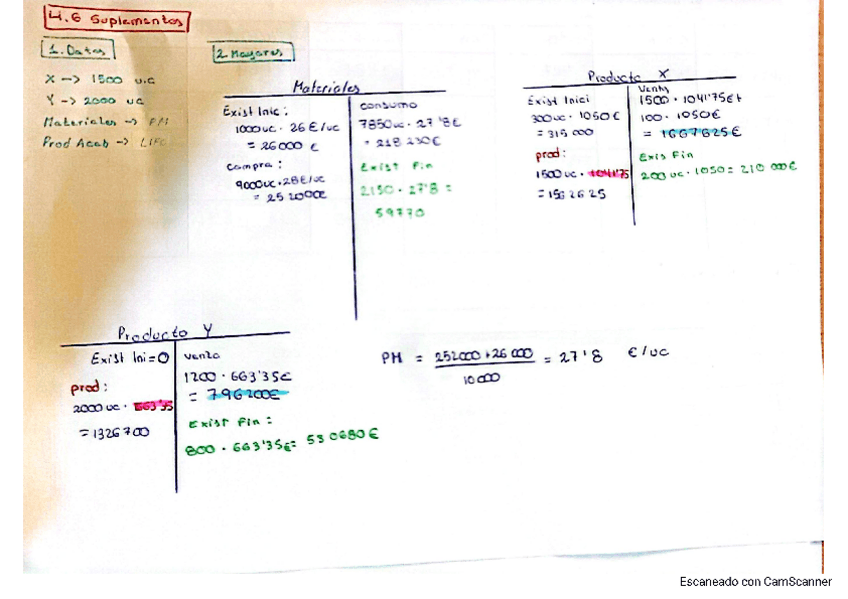 4.6 Suplementos
1. Datos
X -> 1500 u.c
Y -> 2000 uc
Materiales -> PM
Prod Acab -> LIFO
2. Mayores
Materiales
Exist Inic :
1000uc . 26 €/uc
= 26000 €
Compra :
9000uc . 28€/uc
= 252000€
consumo
7850uc . 27'8€
= 218 230€
Exist Fin
2150 . 27'8 =
59770
Producto X
Exist Inici
300uc . 1050€
= 315 000
prod:
1500 uc . 1041'75
= 1562625
Venta
1500 . 1041'75€ +
100 . 1050€
= 1667625€
Exis Fin
200 uc . 1050 = 210 000€
Producto Y
Exist Ini = 0
prod:
2000 uc . 663'35
= 1326700
Venta
1200 . 663'35€
= 796200€
Exist Fin :
800 . 663'35€ = 530680€
PM = 252000 + 26 000 / 10 000 = 27'8 €/uc
Escaneado con CamScanner